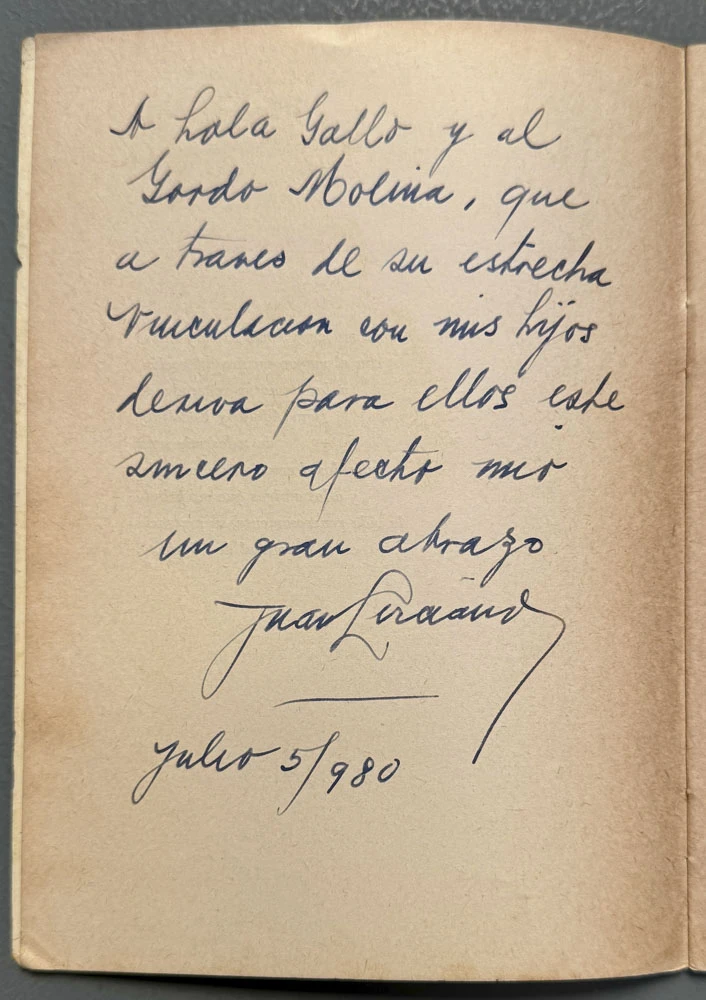 A Lola Gallo y al
Gordo Molina, que
a traves de su estrecha
vinculacion con mis hijos
deriva para ellos este
sincero afecto mio
un gran abrazo
Juan
julio 5/980